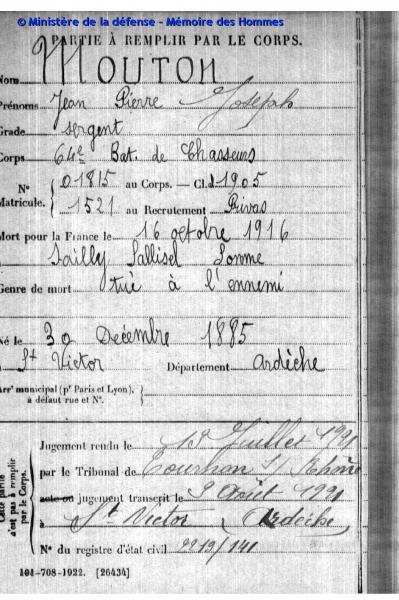 © Ministère de la défense - Mémoire des Hommes
PARTIE À REMPLIR PAR LE CORPS.
Nom MOUTON
Prénoms Jean Pierre Joseph
Grade sergent
Corps 64e Bat. de Chasseurs
N° 01815 au Corps. — Cl. 1905
Matricule. 1521 au Recrutement Privas
Mort pour la France le 16 octobre 1916
à Sailly Sallisel Somme
Genre de mort tué à l'ennemi
Né le 30 Decembre 1885
à St Victor Département Ardèche
Arrt municipal (pr Paris et Lyon),
à défaut rue et N°.
Cette partie
n'est pas à remplir
par le Corps.
Jugement rendu le Juillet
par le Tribunal de Tournon S/ Rhône
acte ou jugement transcrit le Août
à St Victor (Ardèche)
N° du registre d'état civil
101-708-1922. [26434]